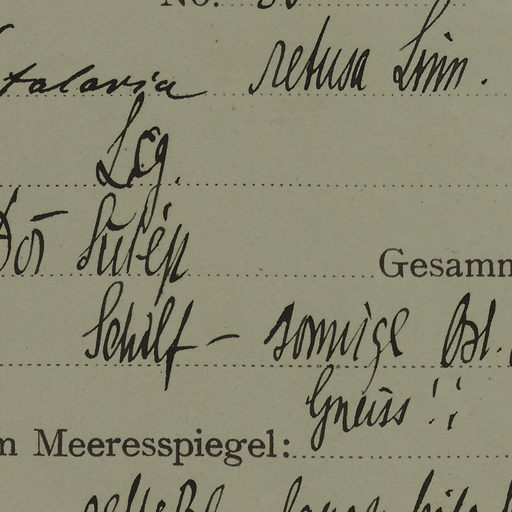 No.
talaria retusa Linn.
Leg.
Doi Sutép Gesamm
Schilf – sonnige Bl.
Gneiss!!
m Meeresspiegel:
gelbe Bl. lange